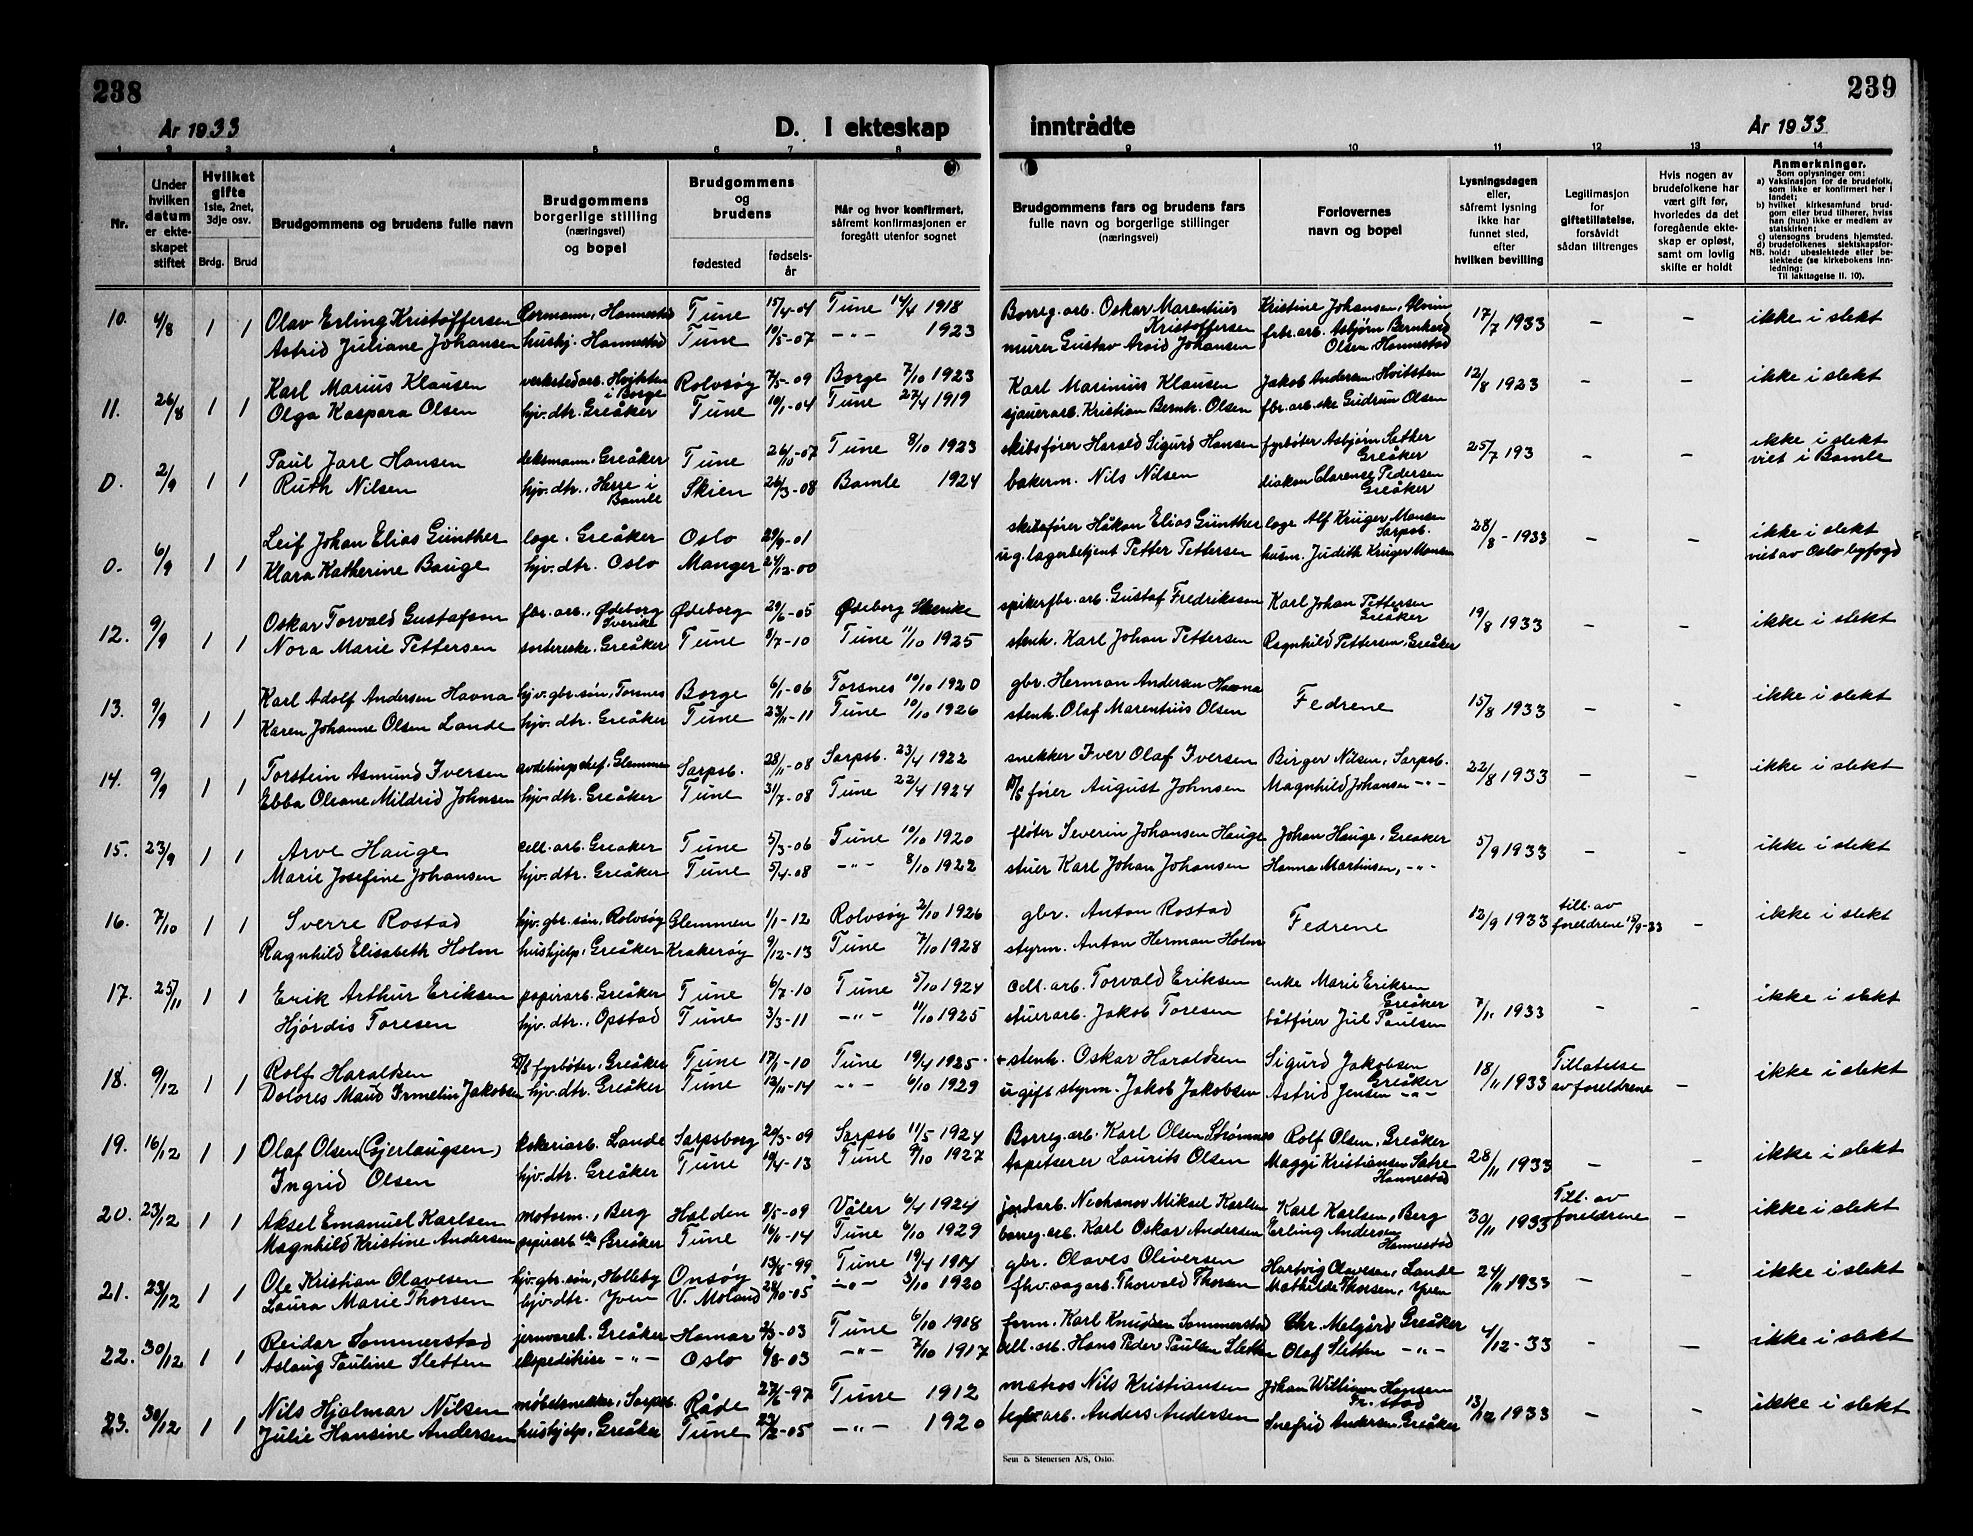 238
239
År 1933
D. I ekteskap
inntrådte
År 1933
1 2 3 4 5 6 7 8
9 10 11 12 13 14
Nr.
Under hvilken datum er ekteskapet stiftet
Hvilket gifte 1ste, 2net, 3dje osv.
Brdg. Brud
Brudgommens og brudens fulle navn
Brudgommens borgerlige stilling (næringsvei) og bopel
Brudgommens og brudens
fødested
fødselsår
Når og hvor konfirmert, såfremt konfirmasjonen er foregått utenfor sognet
Brudgommens fars og brudens fars fulle navn og borgerlige stillinger (næringsvei)
Forlovernes navn og bopel
Lysningsdagen eller, såfremt lysning ikke har funnet sted, efter hvilken bevilling
Legitimasjon for giftetillatelse, forsåvidt sådan tiltrenges
Hvis nogen av brudefolkene har vært gift før, hvorledes da det foregående ekteskap er opløst, samt om lovlig skifte er holdt
Anmerkninger. Som oplysninger om: a) Vaksinasjon for de brudefolk, som ikke er konfirmert her i landet; b) hvilket kirkesamfund brudgom eller brud tilhører, hviss han (hun) ikke er medlem av statskirken; c) utensogns brudens hjemsted. d) brudefolkenes slektskapsforhold: ubeslektede eller beslektede (se kirkebokens innledning; NB. Til iakttagelse II. 10).
10. 4/8 1 1 Olav Erling Kristoffersen formann, Hannestad Tune 15/4-04 Tune 14/4 1918 Borreg. arb. Oskar Marentius Kristoffersen Kristine Johansen, 17/7 1933 – – ikke i slekt
Astrid Juliane Johansen hushj. Hannestad Tune 10/5-07 -"- 1923 murer Gustav Arvid Johansen fbr. arb. Asbjørn Bernhard Olsen Hannestad
11. 26/8 1 1 Karl Marius Klausen verkstedarb. Hvitsten i Borge Rolvsøy 7/5-09 Borge 7/10 1923 Karl Marinius Klausen Jakob Andersen, Hvitsten 12/8 1923 – – ikke i slekt
Olga Kaspara Olsen hjv. dtr. Greåker Tune 10/1-04 Tune 27/4 1919 sjauerarb. Kristian Bernh. Olsen fbr. arb.ske Gudrun Olsen
D. 2/9 1 1 Paul Jarl Hansen deksmann, Greåker Tune 26/10-07 Tune 8/10 1923 skibsfører Harald Sigurd Hansen fyrbøter Asbjørn Sether Greåker 25/7 193 – – ikke i slekt
Ruth Nilsen hjv. dtr., Herre i Bamle Skien 26/3-08 Bamle 1924 bakerm. Nils Nilsen diakon Clarence Pedersen Greåker viet i Bamle
O. 6/9 1 1 Leif Johan Elias Günther loge. Greåker Oslo 29/9-01 skibsfører Håkon Elias Günther loge Alf Krüger Monsen Sarpsb. 28/8-1933 – – ikke i slekt
Klara Katherine Bauge hjv. dtr. Oslo Manger 24/12-00 ug. lagerbetjent Petter Pettersen husm. Judith Krüger Monsen viet av Oslo byfogd
12. 9/9 1 1 Oskar Torvald Gustafson fbr. arb., Ødeborg Sverike Ødeborg 29/6-05 Ødeborg Sverike spikerfbr. arb. Gustaf Fredriksson Karl Johan Pettersen Greåker 19/8 1933 – – ikke i slekt
Nora Marie Pettersen sorterske. Greåker Tune 8/7-10 Tune 11/10 1925 stenh. Karl Johan Pettersen Ragnhild Pettersen, Greåker
13. 9/9 1 1 Karl Adolf Andersen Havna hjv. gbr. søn, Torsnes Borge 6/1-06 Torsnes 10/10 1920 gbr. Herman Andersen Havna Fedrene 15/8 1933 – – ikke i slekt
Karen Johanne Olsen Lande hjv. dtr. Greåker Tune 23/11-11 Tune 10/10 1926 stenh. Olaf Marentius Olsen
14. 9/9 1 1 Torstein Asmund Iversen avdelingschef. Glemmen Sarpsb. 28/11-08 Sarpsb. 23/4 1922 snekker Iver Olaf Iversen Birger Nilsen, Sarpsb. 22/8 1933 – – ikke i slekt
Ebba Oleane Mildrid Johnsen hjv. dtr. Greåker Tune 31/7-08 Tune 22/4 1924 fører August Johnsen Magnhild Johansen -"-
15. 23/9 1 1 Arve Hauge cell. arb. Greåker Tune 5/3-06 Tune 10/10 1920 fløter Severin Johansen Hauge Johan Hauge, Greåker 5/9 1933 – – ikke i slekt
Marie Josefine Johansen hjv. dtr. Greåker Tune 5/4-08 -"- 8/10 1922 stuer Karl Johan Johansen Hanna Martinsen, -"-
16. 7/10 1 1 Sverre Rostad hjv. gbr. søn. Rolvsøy Glemmen 1/1-12 Rolvsøy 2/10 1926 gbr. Anton Rostad Fedrene 12/9 1933 till. av foreldrene – ikke i slekt
Ragnhild Elisabeth Holm hushjelp, Greåker Krakerøy 9/12-13 Tune 7/10 1928 styrm. Anton Herman Holm
17. 25/11 1 1 Erik Arthur Eriksen papirarb. Greåker Tune 6/7-10 Tune 5/10 1924 cell. arb. Torvald Eriksen enke Marie Eriksen Greåker 7/11 1933 – – ikke i slekt
Hjørdis Toresen hjv. dtr., Opstad Tune 3/3-11 -"- 11/10 1925 stuerarb. Jakob Toresen båtfører Jul Paulsen
18. 9/12 1 1 Rolf Haraldsen fyrbøter, Greåker Tune 17/1-10 Tune 19/4 1925 + stenh. Oskar Haraldsen Sigurd Jakobsen Greåker 18/11 1933 Tillatelse av foreldrene – ikke i slekt
Dolores Maud Irmelin Jakobsen hjv. dtr. Greåker Tune 13/11-14 -"- 6/10 1929 ugift styrm. Jakob Jakobsen Astrid Jensen -"-
19. 16/12 1 1 Olaf Olsen (Gjerlaugsen) kokeriarb. Lande Sarpsborg 20/3-09 Sarpsb 11/5 1924 Borreg. arb. Karl Olsen Strømnes Rolf Olsen, Greåker 28/11 1933 – – ikke i slekt
Ingrid Olsen hjv. dtr. Greåker Tune 10/4-13 Tune 9/10 1927 tapitserer Laurits Olsen Maggi Kristiansen Hannestad
20. 23/12 1 1 Aksel Emanuel Karlsen motorm., Berg Halden 8/5-09 Våler 6/4 1924 jordarb. Mikael Karlsen Karl Karlsen, Berg 30/11 1933 Till. av foreldrene – ikke i slekt
Magnhild Kristine Andersen papirarb.ske Greåker Tune 16/11-14 Tune 6/10 1929 borreg. arb. Karl Oskar Andersen Erling Andersen Hannestad
21. 23/12 1 1 Ole Kristian Olavesen hjv. gbr. søn, Holleby Onsøy 13/8-99 Tune 19/4 1914 gbr. Olaves Oliversen Hartvig Olavesen, Lande 24/11 1933 – – ikke i slekt
Laura Marie Thorsen hjv. dtr. Yven V. Moland 28/10-05 -"- 3/10 1920 fhv. sagarb. Thorvald Thorsen Mathilde Thorsen, Yven
22. 30/12 1 1 Reidar Sommerstad jernvareh. Greåker Hamar 2/3-03 Tune 6/10 1918 form. Karl Knudsen Sommerstad Chr. Melgård Greåker 4/12-33 – ikke i slekt
Aslaug Pauline Sletten ekspeditrise -"- Oslo 6/8-03 -"- 7/10 1917 cell. arb. Hans Peder Paulsen Sletten Olaf Sletten -"-
23. 30/12 1 1 Nils Hjalmar Nilsen møbelsnekker, Sarpsb. Råde 27/6-97 Tune 1912 matros Nils Kristiansen Johan William Hansen Fr.stad 13/12 1933 – – ikke i slekt
Julie Hansine Andersen hushjelp, Greåker Tune 23/2-05 -"- 1920 teglv. arb. Anders Andersen Snefrid Andersen, Greåker
Sem & Stenersen A/S, Oslo.